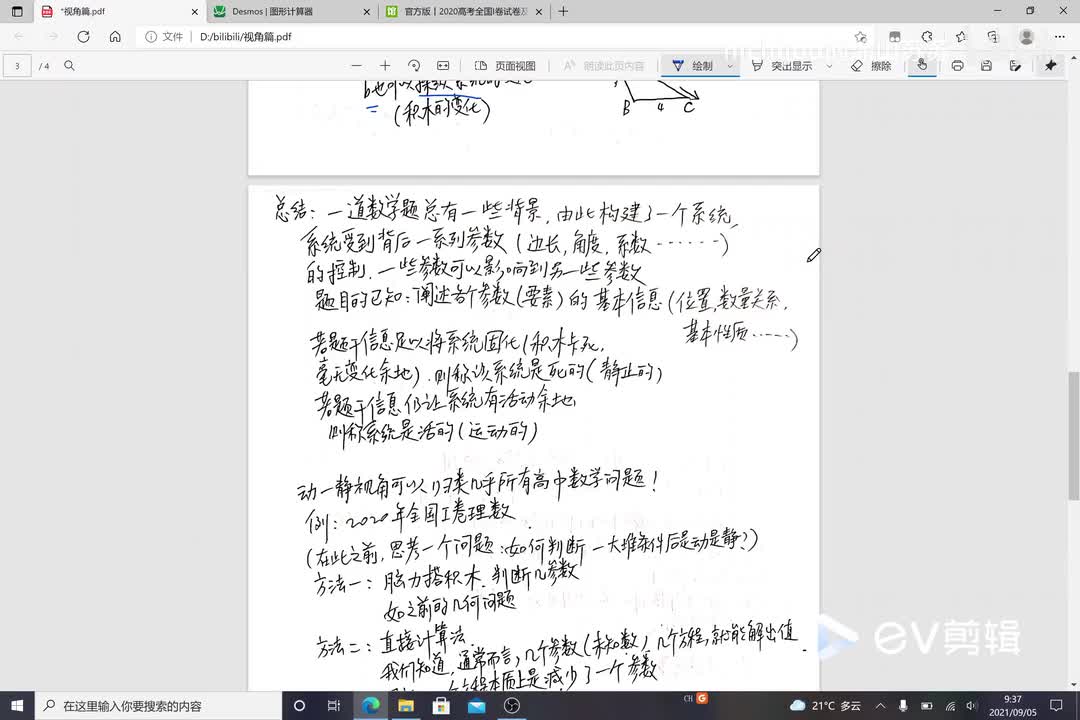 *视角篇.pdf
Desmos | 图形计算器
官方版 | 2020高考全国I卷试卷及
文件
D:/bilibili/视角篇.pdf
3
/ 4
页面视图
朗读此页内容
绘制
突出显示
擦除
(积木的变化)
B 4 C
总结: 一道数学题总有一些背景, 由此构建了一个系统,
系统受到背后一系列参数 (边长, 角度, 系数······)
的控制. 一些参数可以影响到另一些参数
题目的已知: 阐述各个参数(要素)的基本信息(位置, 数量关系,
基本性质······)
若题干信息足以将系统固化(积木卡死,
毫无变化余地). 则称该系统是死的(静止的)
若题干信息仍让系统有活动余地,
则称系统是活的(运动的)
动—静视角可以归类几乎所有高中数学问题!
例: 2020年全国I卷理数.
(在此之前, 思考一个问题: 如何判断一大堆条件后是动是静?)
方法一: 脑力搭积木. 判断几参数
如之前的几何问题
方法二: 直接计算法.
我们知道, 通常而言, 几个参数(未知数), 几个方程, 就能解出值.
方程本质上是减少了一个参数
EV剪辑
在这里输入你要搜索的内容
CH
21°C 多云
9:37
2021/09/05